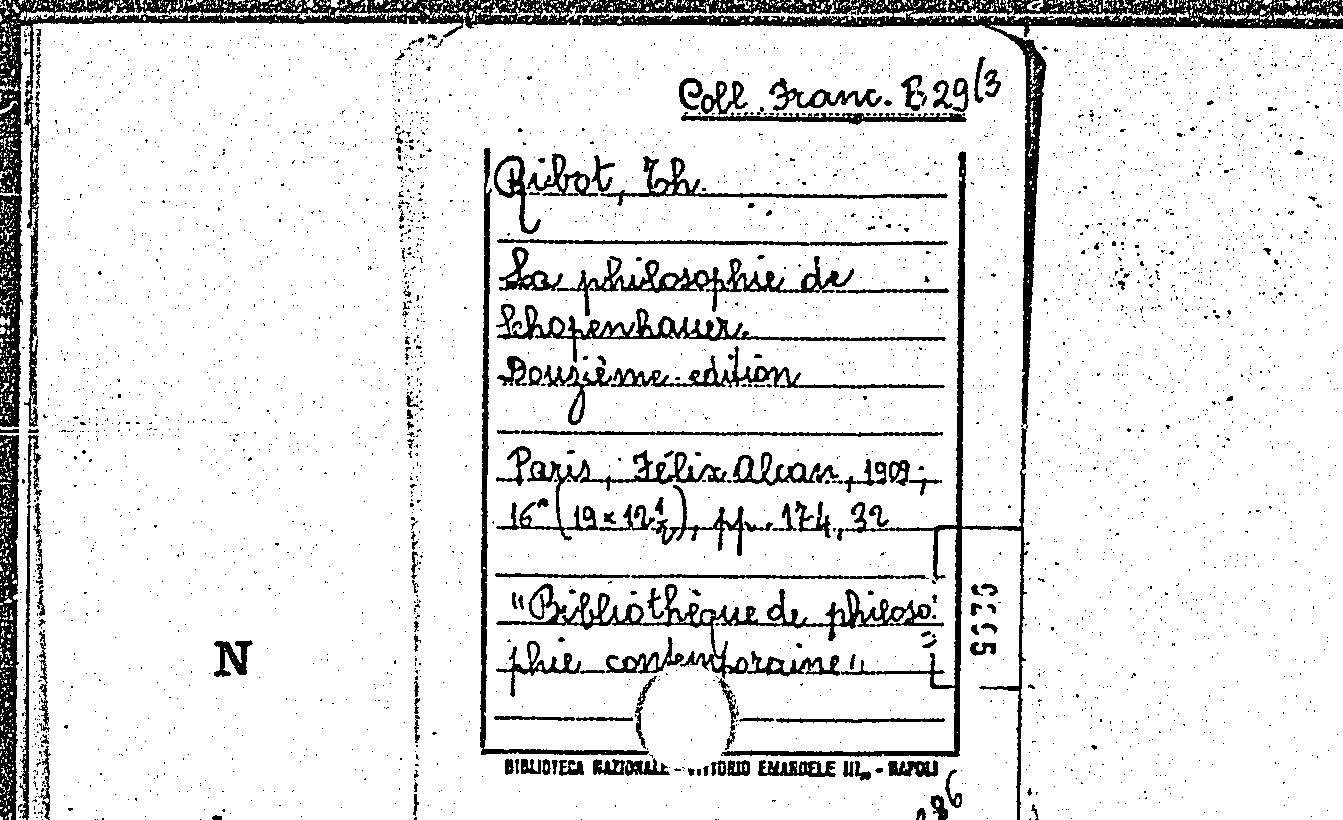 Coll. Franc. B 29(3
Ribot, Th.
La philosophie de
Schopenhauer.
Douzième edition
Paris, Félix Alcan, 1909;
16° (19 × 12½), pp. 174, 32
"Bibliothèque de philoso=
phie contemporaine".
N
BIBLIOTECA NAZIONALE - VITTORIO EMANUELE III - NAPOLI